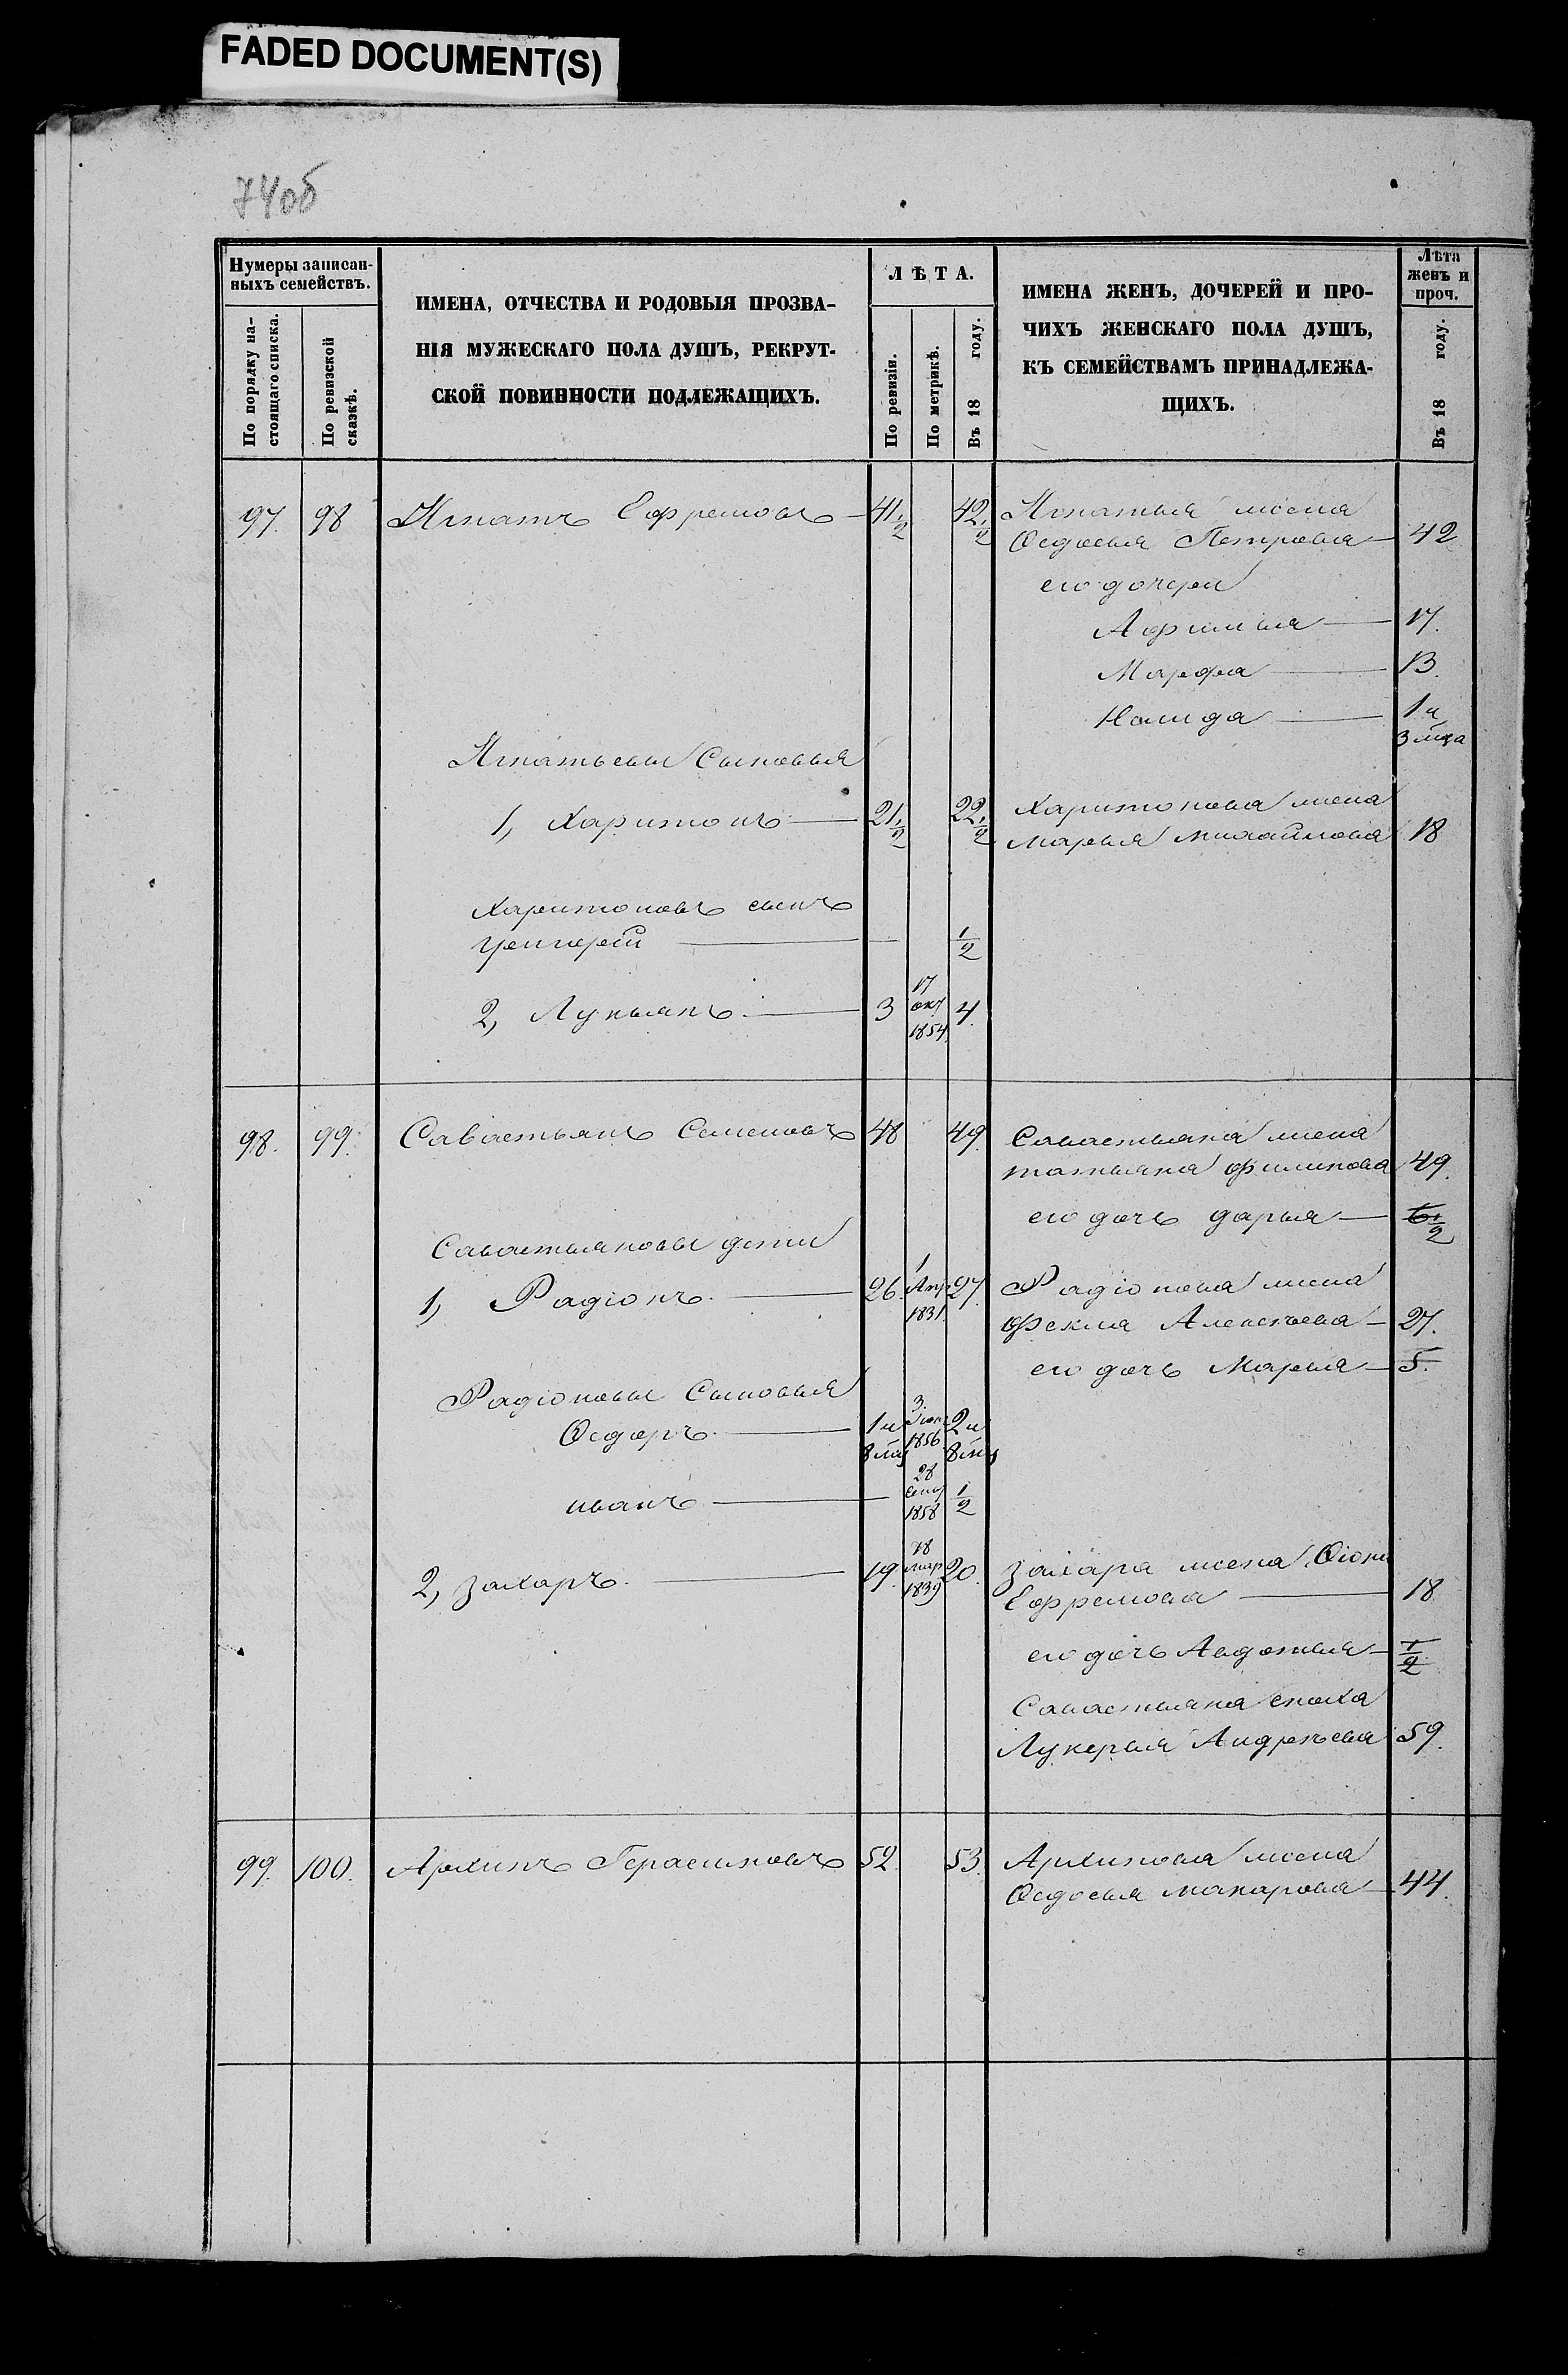 FADED DOCUMENT(S)
74об
Нумеры записан-
ныхъ семействъ.
По порядку на-
стоящаго списка.
По ревизской
сказкѣ.
ИМЕНА, ОТЧЕСТВА И РОДОВЫЯ ПРОЗВА-
НІЯ МУЖЕСКАГО ПОЛА ДУШЪ, РЕКРУТ-
СКОЙ ПОВИННОСТИ ПОДЛЕЖАЩИХЪ.
ЛѢТА.
По ревизіи.
По метрикѣ.
Въ 18 году.
ИМЕНА ЖЕНЪ, ДОЧЕРЕЙ И ПРО-
ЧИХЪ ЖЕНСКАГО ПОЛА ДУШЪ,
КЪ СЕМЕЙСТВАМЪ ПРИНАДЛЕЖА-
ЩИХЪ.
Лѣта
женъ и
проч.
Въ 18 году.
97. 98 Игнатъ Ефремовъ 41 1/2 42 1/2 Игнатья жена
Ѳедосья Петрова 42
его дочери
Афимья 17.
Марфа 13.
1 и
3 мца
Игнатьевы Сыновья
1, Харитонъ 21 1/2 22 1/2 Харитонова жена
Марья Михайлова 18
Харитоновъ сынъ
Григорей 1/2
2, Лукьянъ 3 17 окт 1854 4.
98. 99. Савастьянъ Семеновъ 48 49. Савастьяна жена
татьяна филипова 49.
его дочь дарья
Савастьяновы дети
1, Радіонъ 26. 1 Апр 1831. 27. Радіонова жена
Фекла Алексѣева 27.
его дочь Марья 5.
Радіоновы Сыновья
Ѳедоръ 1 и 8 мц 3 1856 2 и 8 мц
иванъ 28 1858 1/2
2, захаръ 19. 18 мар 1839 20. захара жена
Ефремова 18
его дочь Авдотья 1/2
Савастьяна сноха
Лукерья Андрѣева 59.
99. 100. Архипъ Герасимовъ 52. 53. Архипова жена
Ѳедосья макарова 44.